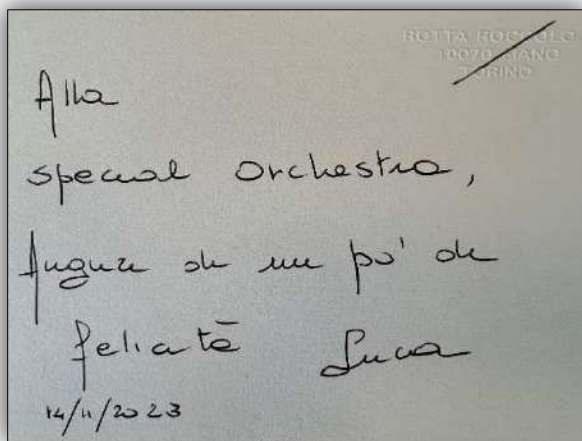 ROTTA ROCCOLO
10070
TORINO
Alla
special orchestra,
Auguri di un po' di
felicità Luca
14/11/2023